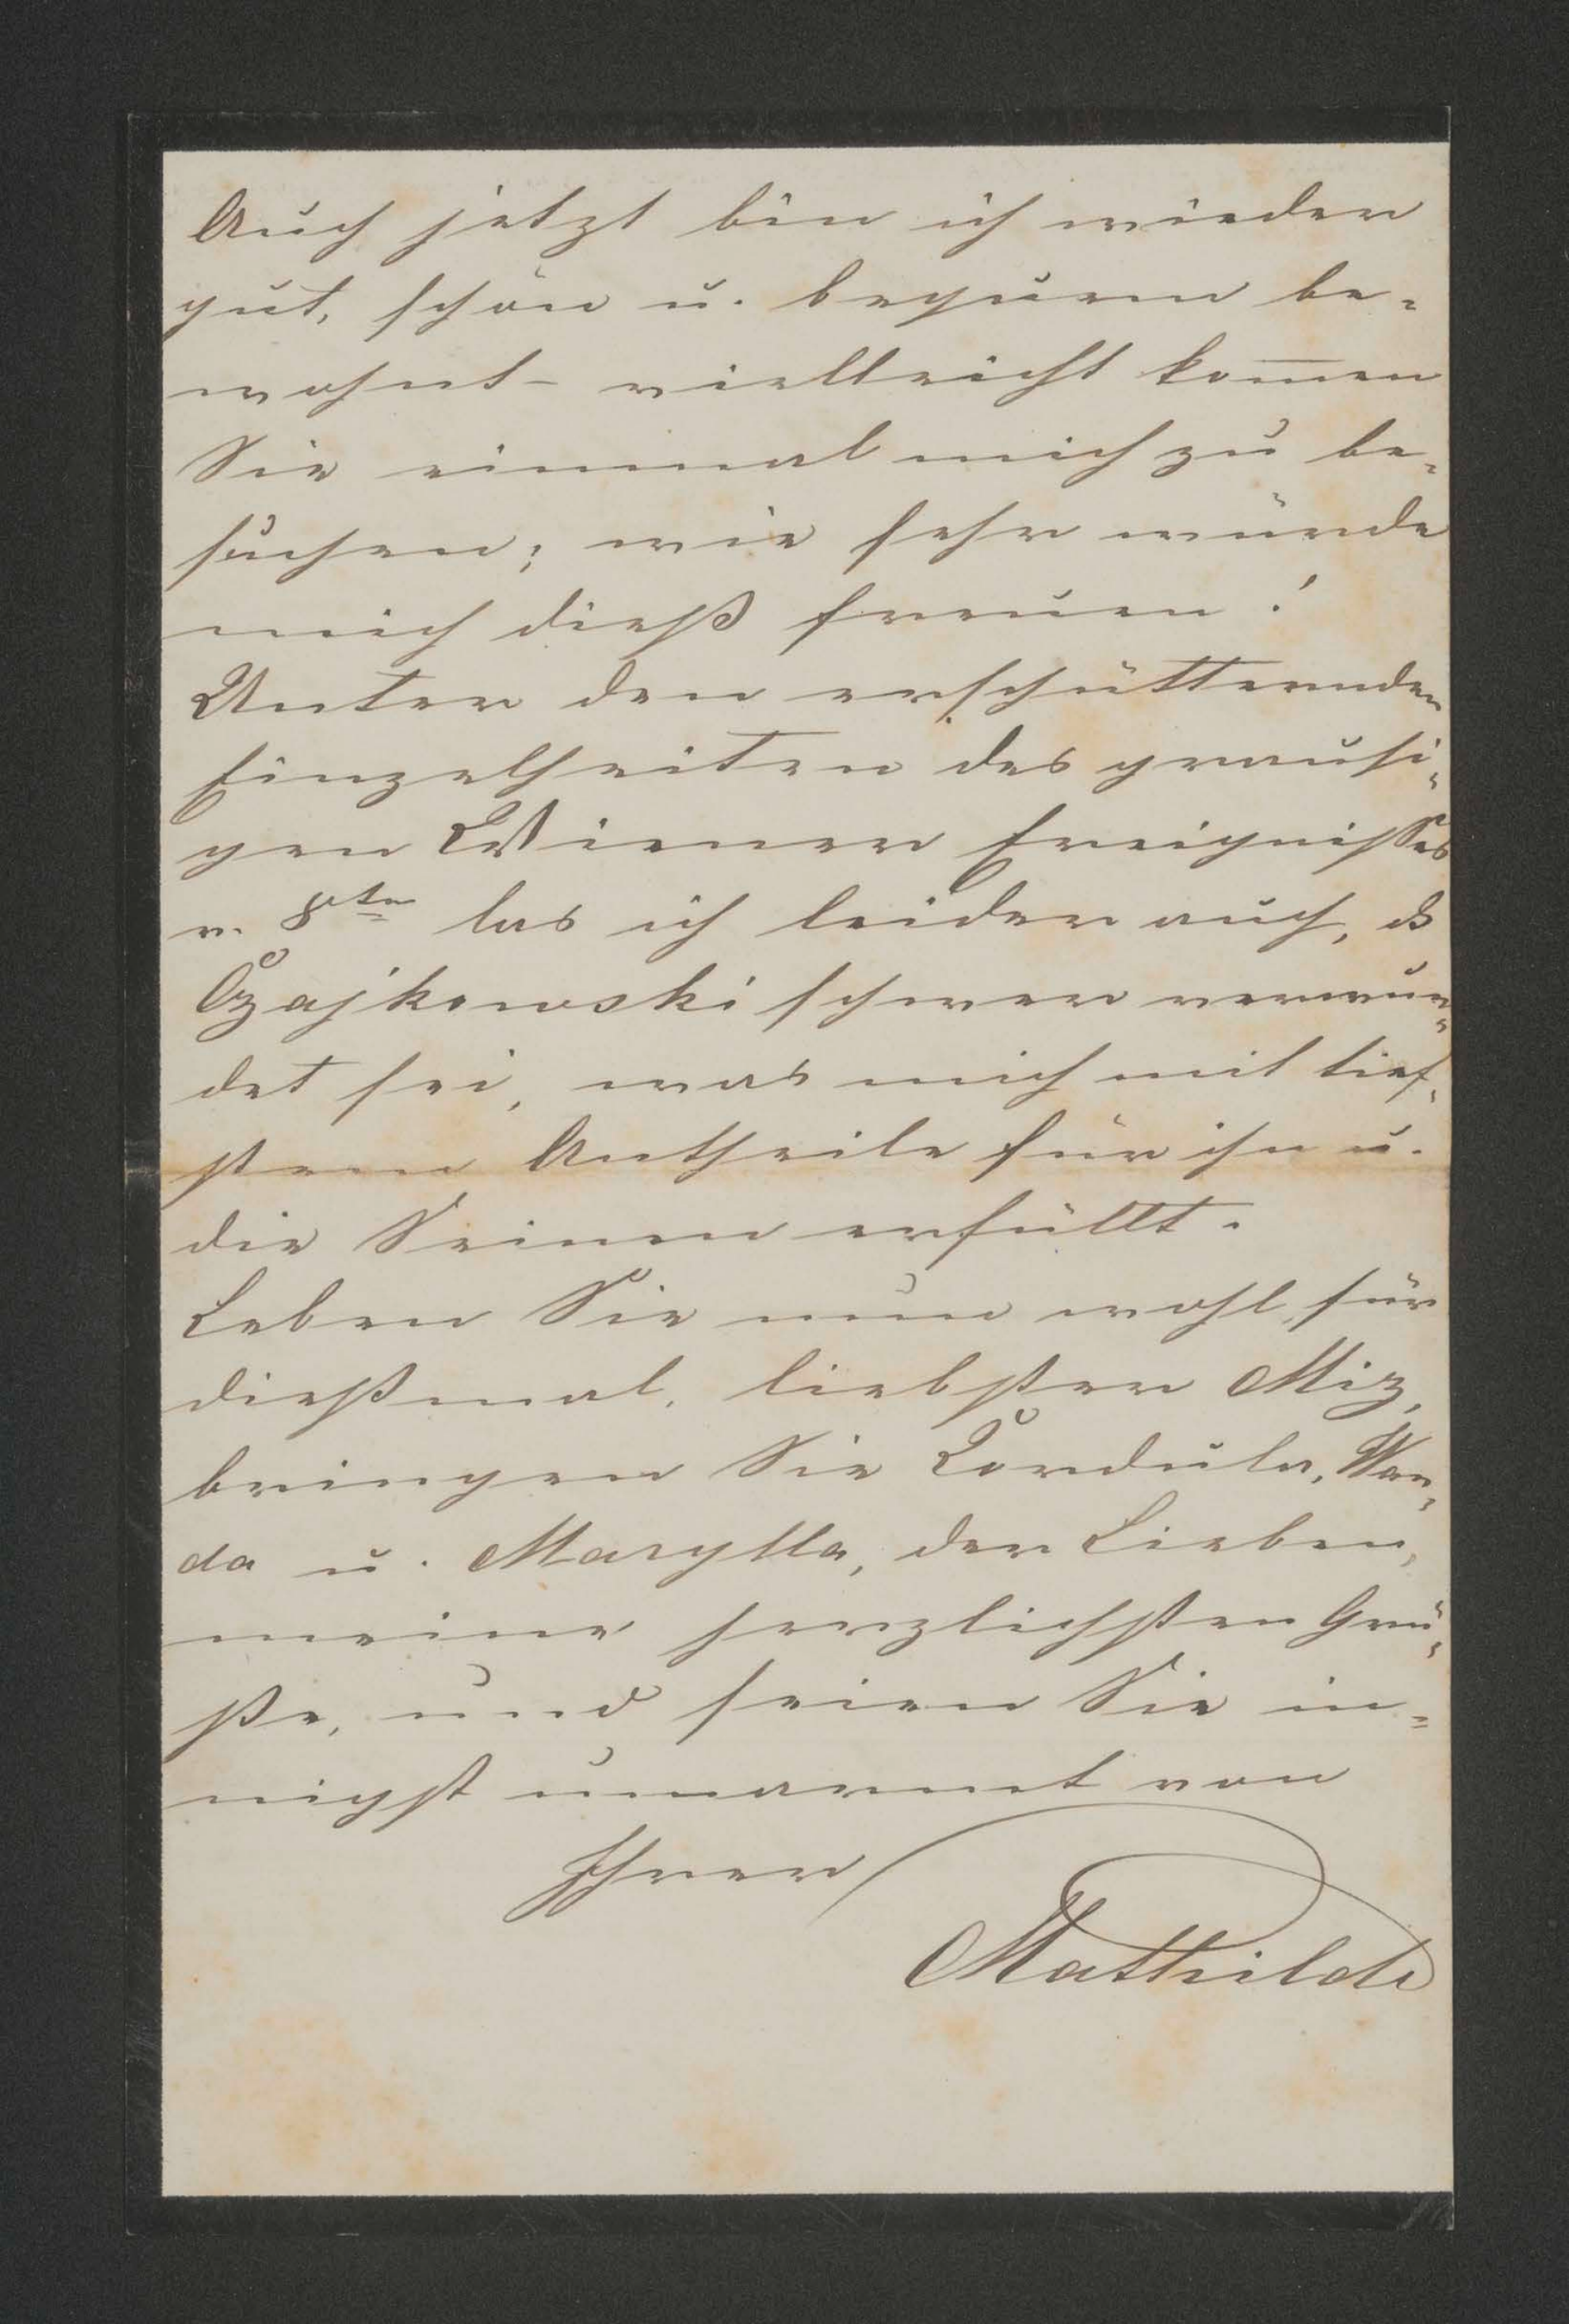 Auch jetzt bin ich wieder
gut, schön u. bequem be-
wohnt – vielleicht kom̅en
Sie einmal mich zu be-
suchen; wie sehr würde
mich dieß freuen!
Unter den erschütternden
Einzelheiten des grausi-
gen Wiener Ereignisses
v. 8ten las ich leider auch, dß
Czajkowski schwer verwun-
det sei, was mich mit tief-
stem Antheile für ihn u.
die Seinen erfüllt.
Leben Sie nun wohl für
dießmal, liebster Miz,
bringen Sie Cordula, Wan-
da u. Marylla, der Lieben,
meine herzlichsten Grü-
ße, und seien Sie in-
nigst umarmt von
Ihrer
Mathilde